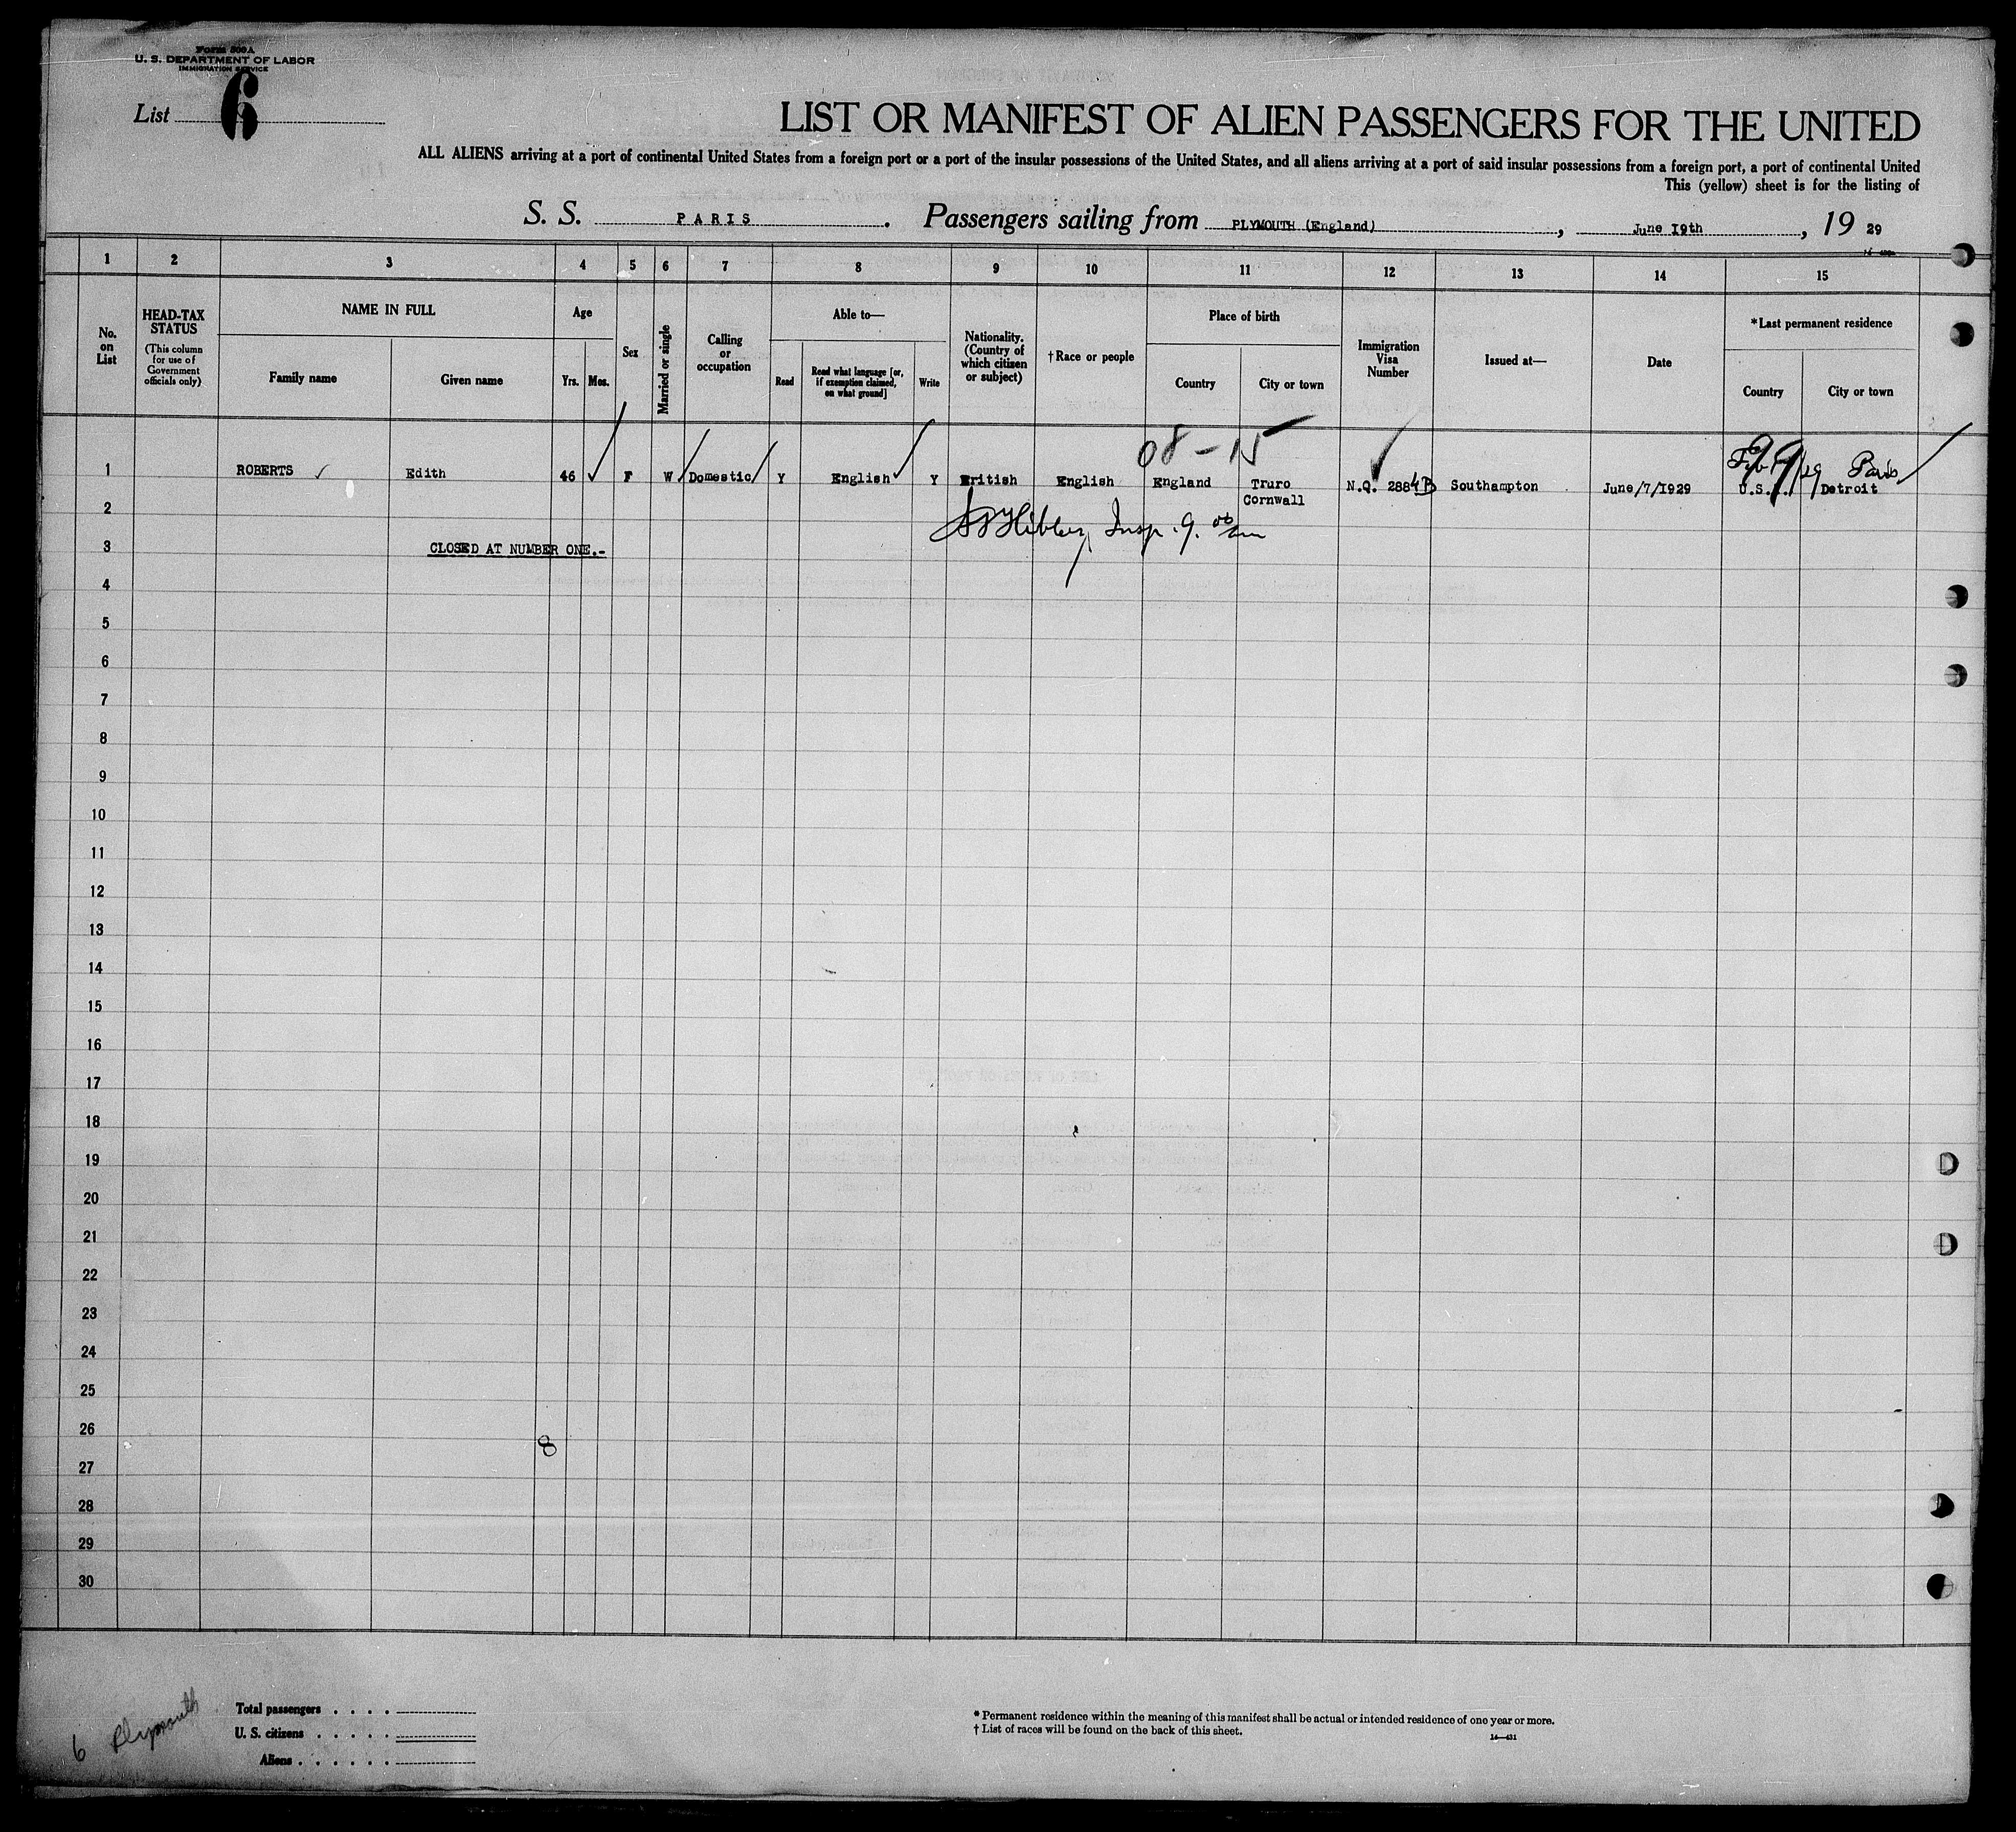 Form 500 A
U. S. DEPARTMENT OF LABOR
IMMIGRATION SERVICE
List 6
LIST OR MANIFEST OF ALIEN PASSENGERS FOR THE UNITED
ALL ALIENS arriving at a port of continental United States from a foreign port or a port of the insular possessions of the United States, and all aliens arriving at a port of said insular possessions from a foreign port, a port of continental United
This (yellow) sheet is for the listing of
S. S. PARIS. Passengers sailing from PLYMOUTH (England), June 19th, 19 29
1 2 3 4 5 6 7 8 9 10 11 12 13 14 15
No. on List
HEAD-TAX STATUS
(This column for use of Government officials only)
NAME IN FULL
Family name
Given name
Age
Yrs.
Mos.
Sex
Married or single
Calling or occupation
Able to—
Read
Read what language [or, if exemption claimed, on what ground]
Write
Nationality. (Country of which citizen or subject)
† Race or people
Place of birth
Country
City or town
Immigration Visa Number
Issued at—
Date
* Last permanent residence
Country
City or town
08 - 15
99
Paris
1 ROBERTS Edith 46 F W Domestic Y English Y British English England Truro N.Q. 2884 B Southampton June/7/1929 U.S.A. Detroit
Cornwall
2
Insp. 9.
3 CLOSED AT NUMBER ONE.-
4
5
6
7
8
9
10
11
12
13
14
15
16
17
18
19
20
21
22
23
24
25
26
8
27
28
29
30
6 Plymouth
Total passengers . . . .
U. S. citizens . . . . .
Aliens . . . . . .
* Permanent residence within the meaning of this manifest shall be actual or intended residence of one year or more.
† List of races will be found on the back of this sheet.
14—431